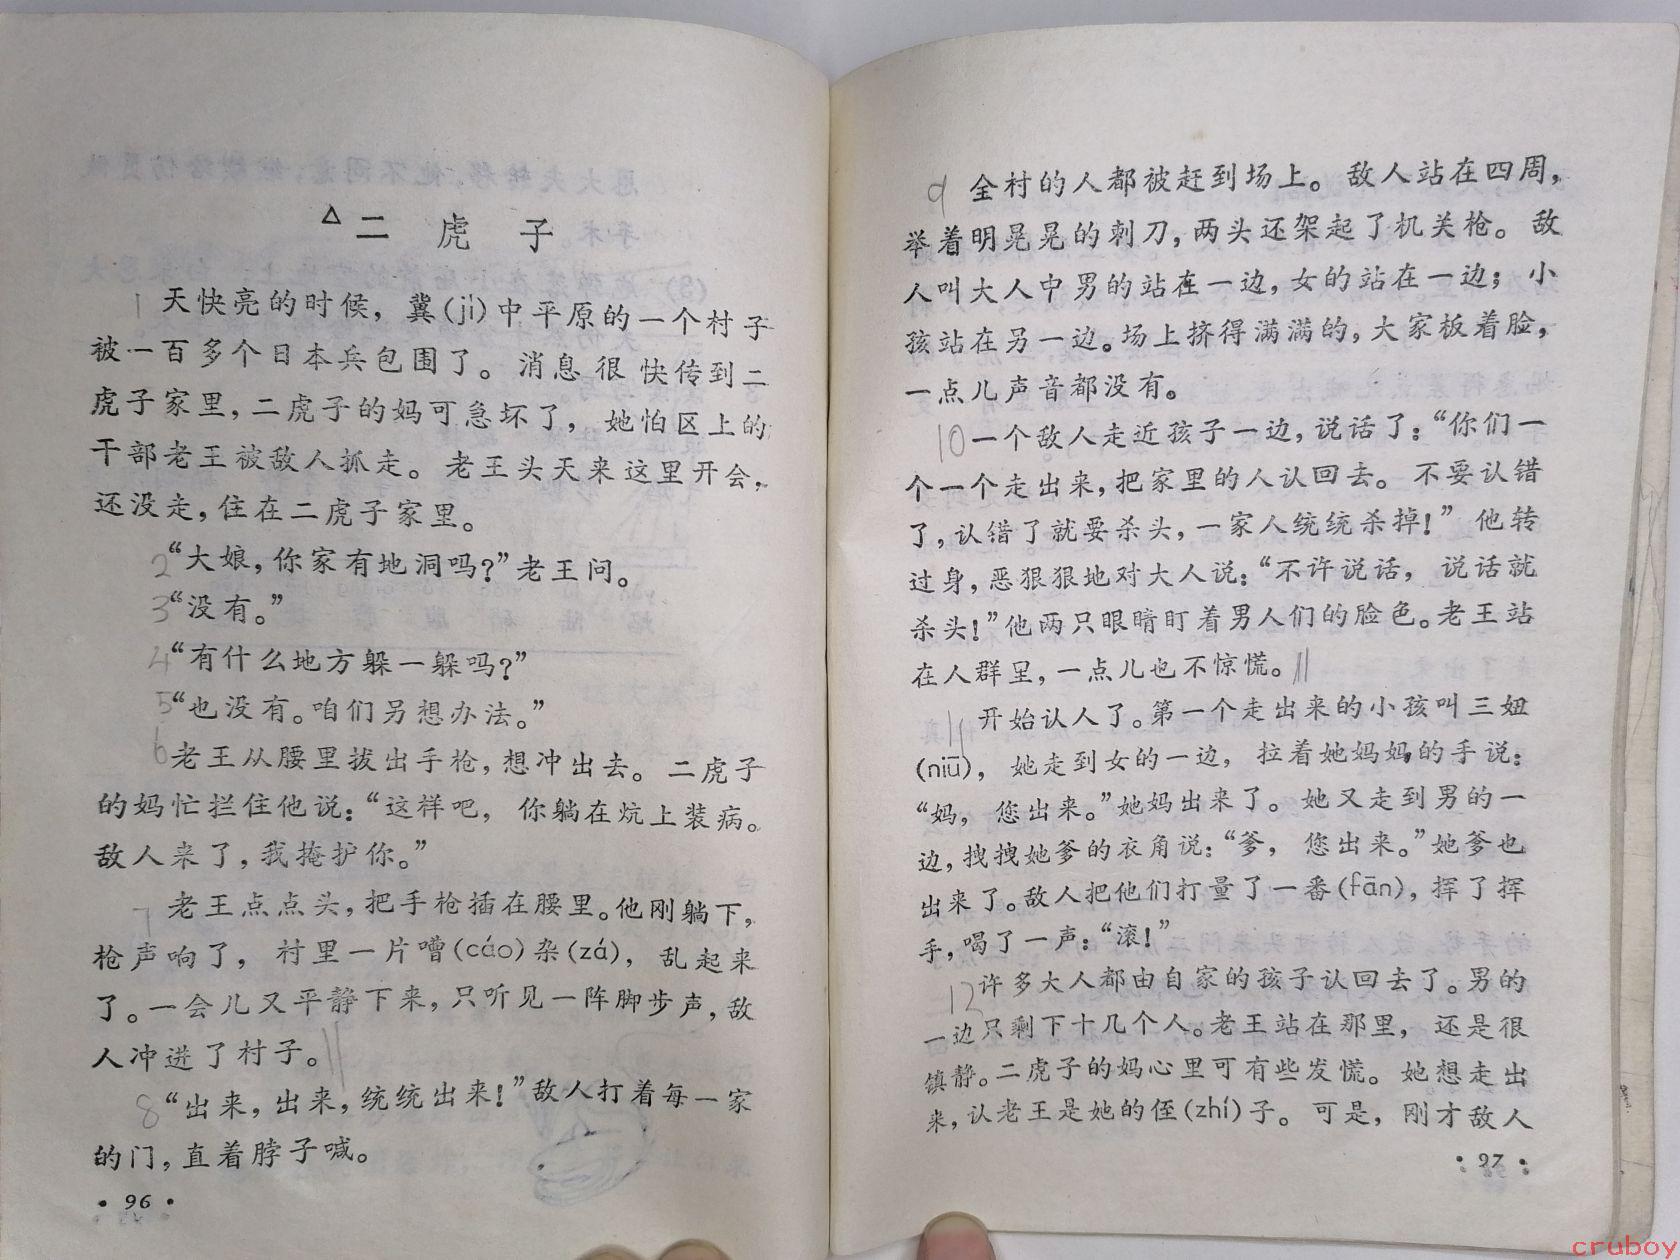 △二 虎 子
1 天快亮的时候，冀(jì)中平原的一个村子
被一百多个日本兵包围了。消息很快传到二
虎子家里，二虎子的妈可急坏了，她怕区上的
干部老王被敌人抓走。老王头天来这里开会，
还没走，住在二虎子家里。
2 “大娘，你家有地洞吗？”老王问。
3 “没有。”
4 “有什么地方躲一躲吗？”
5 “也没有。咱们另想办法。”
6 老王从腰里拔出手枪，想冲出去。二虎子
的妈忙拦住他说：“这样吧，你躺在炕上装病。
敌人来了，我掩护你。”
7 老王点点头，把手枪插在腰里。他刚躺下，
枪声响了，村里一片嘈(cáo)杂(zá)，乱起来
了。一会儿又平静下来，只听见一阵脚步声，敌
人冲进了村子。||
8 “出来，出来，统统出来！”敌人打着每一家
的门，直着脖子喊。
• 96 •
9 全村的人都被赶到场上。敌人站在四周，
举着明晃晃的刺刀，两头还架起了机关枪。敌
人叫大人中男的站在一边，女的站在一边；小
孩站在另一边。场上挤得满满的，大家板着脸，
一点儿声音都没有。
10 一个敌人走近孩子一边，说话了：“你们一
个一个走出来，把家里的人认回去。不要认错
了，认错了就要杀头，一家人统统杀掉！”他转
过身，恶狠狠地对大人说：“不许说话，说话就
杀头！”他两只眼睛盯着男人们的脸色。老王站
在人群里，一点儿也不惊慌。||
11 开始认人了。第一个走出来的小孩叫三妞
(niū)，她走到女的一边，拉着她妈妈的手说：
“妈，您出来。”她妈出来了。她又走到男的一
边，拽拽她爹的衣角说：“爹，您出来。”她爹也
出来了。敌人把他们打量了一番(fān)，挥了挥
手，喝了一声：“滚！”
12 许多大人都由自家的孩子认回去了。男的
一边只剩下十几个人。老王站在那里，还是很
镇静。二虎子的妈心里可有些发慌。她想走出
来，认老王是她的侄(zhí)子。可是，刚才敌人
• 97 •
cruboy